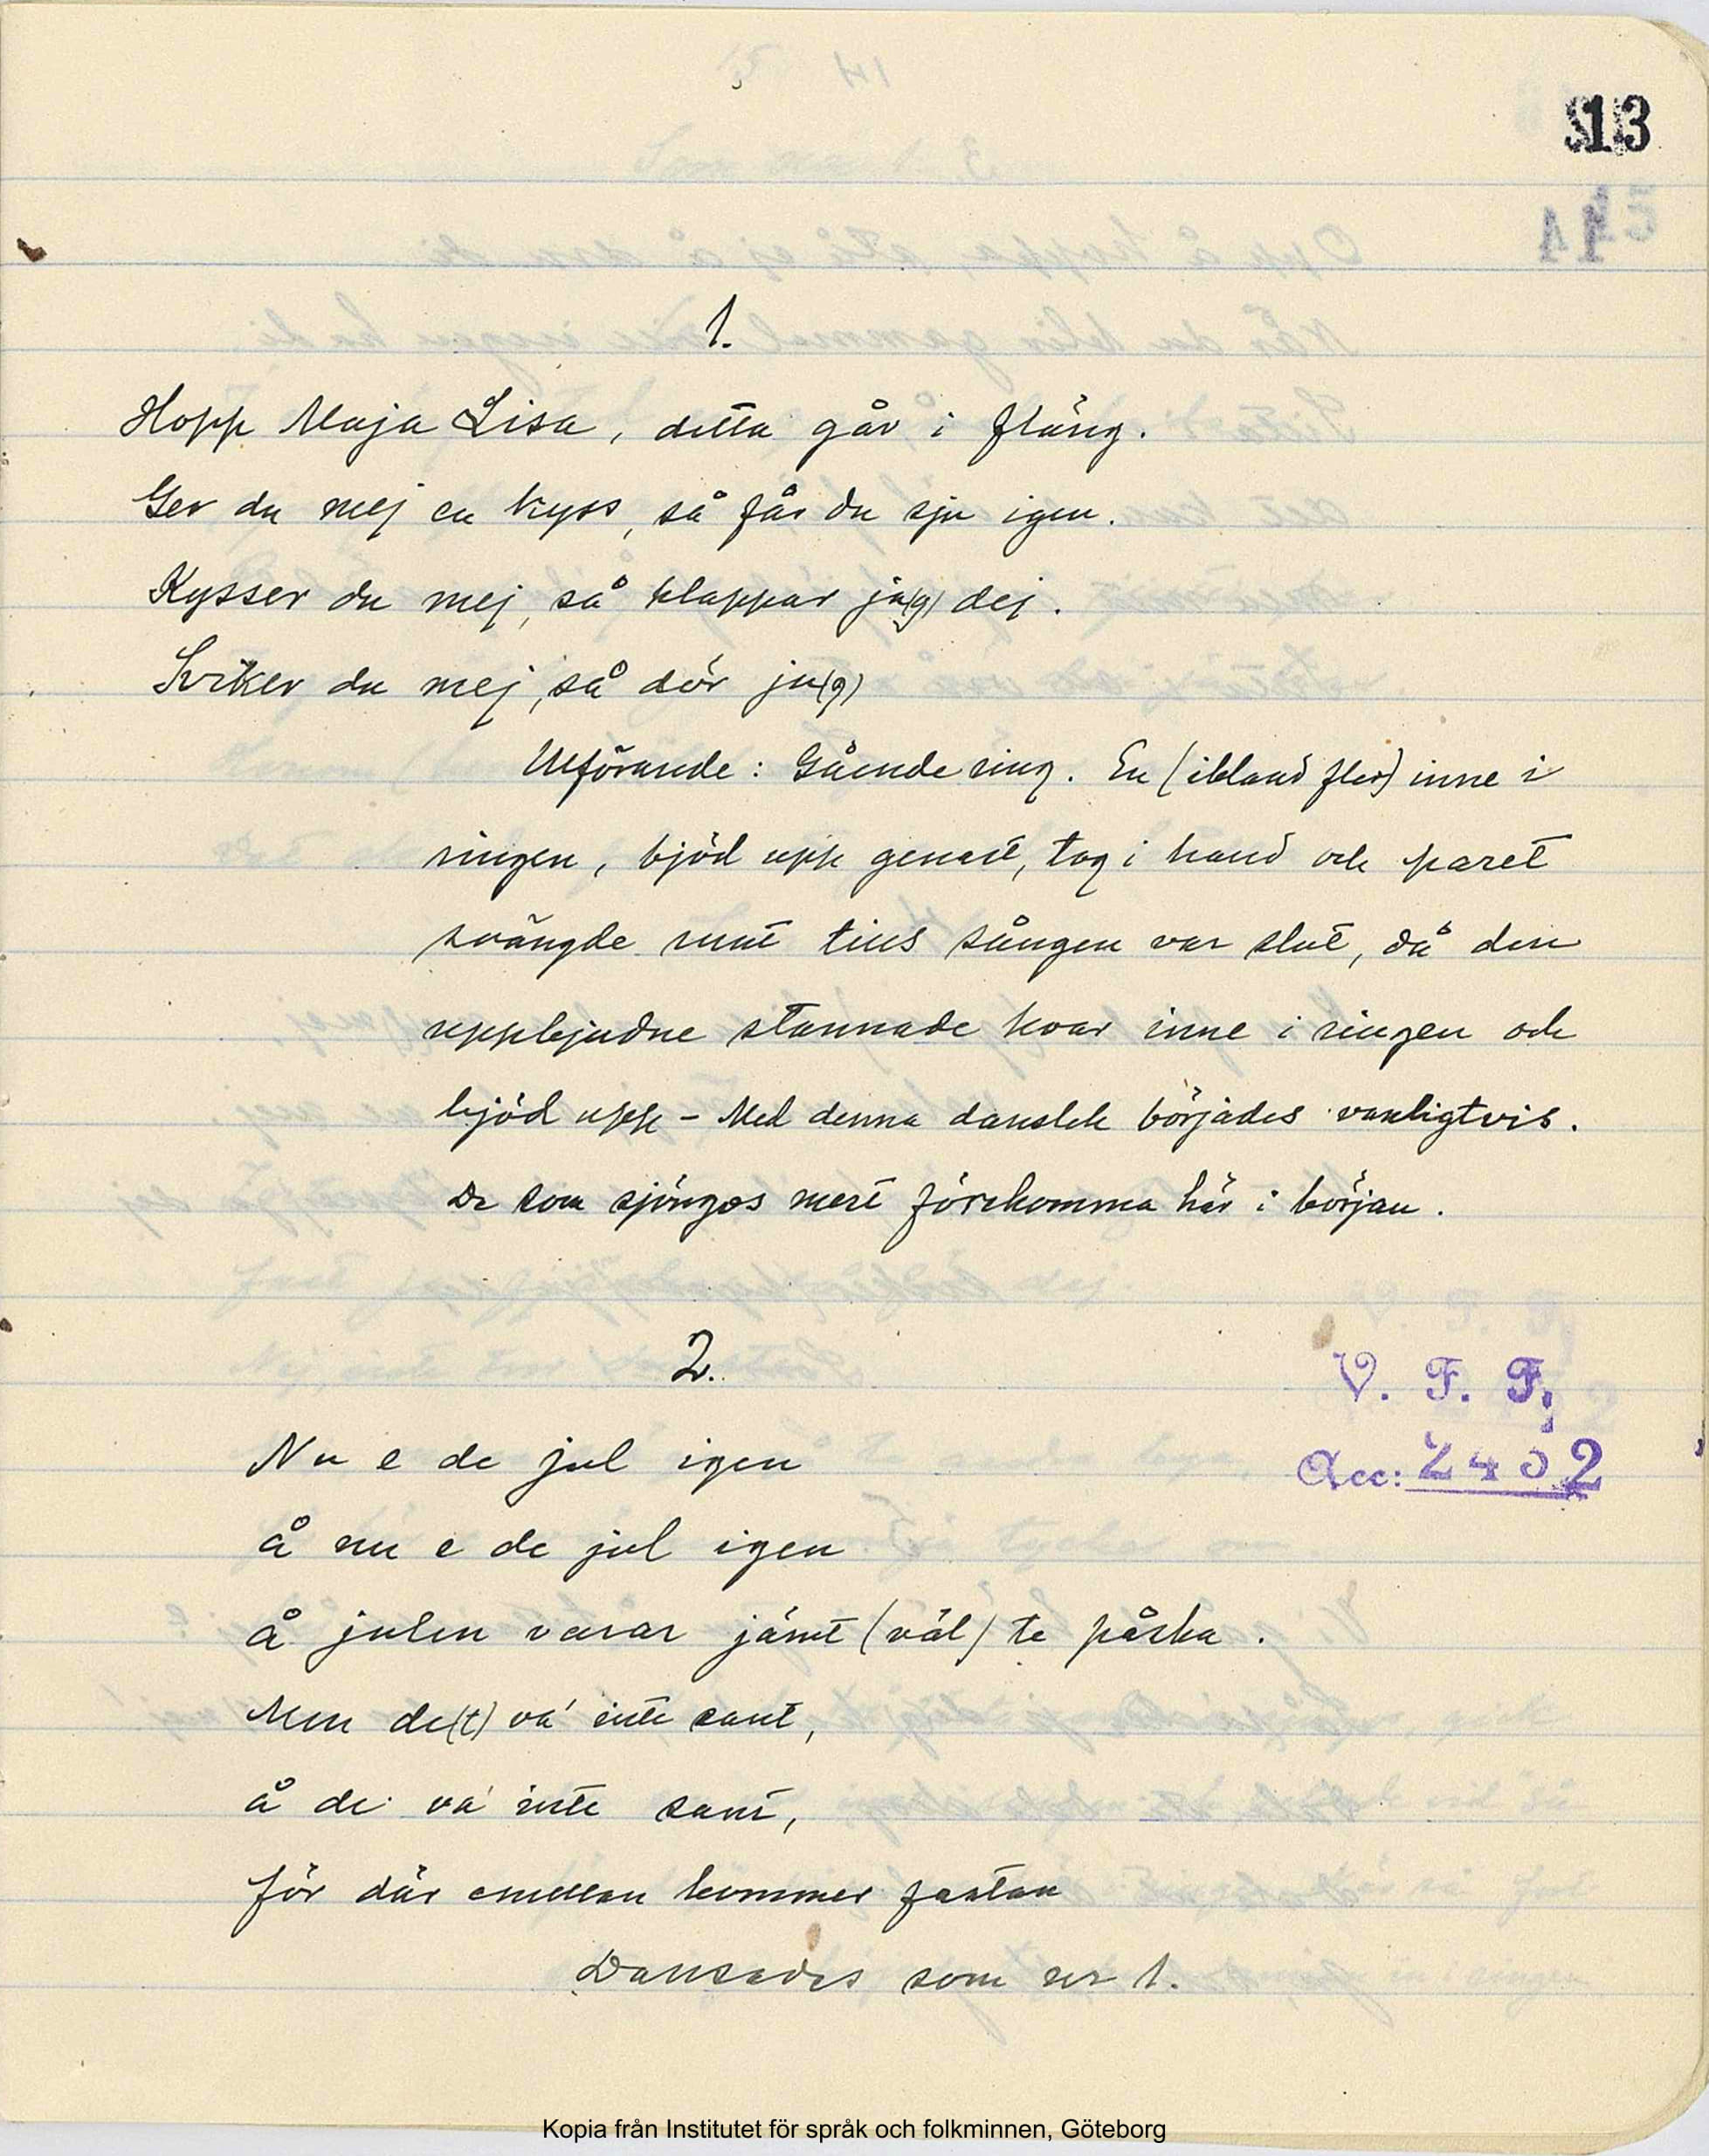 13
1.
Hopp Maja Lisa, detta går i fläng.
Ger du mej en kyss, så får du sju igen.
Kysser du mej, så klappar ja(g) dej.
Sviker du mej, så dör ja(g)
Utförande: Gående ring. En (ibland fler) inne i
ringen, bjöd upp genast, tog i hand och paret
svängde runt tills sången var slut, då den
uppbjudne stannade kvar inne i ringen och
bjöd upp – Med denna danslek börjades vanligtvis.
De som sjöngos mest förekomma här i början.
2.
V. F. F.
Nu e de jul igen
Acc: 2402
å nu e de jul igen
å julen varar jämt (väl) te påska.
Men de(t) va' inte sant,
å de va' inte sant,
för där emellan kommer fastan
Dansades som nr 1.
Kopia från Institutet för språk och folkminnen, Göteborg